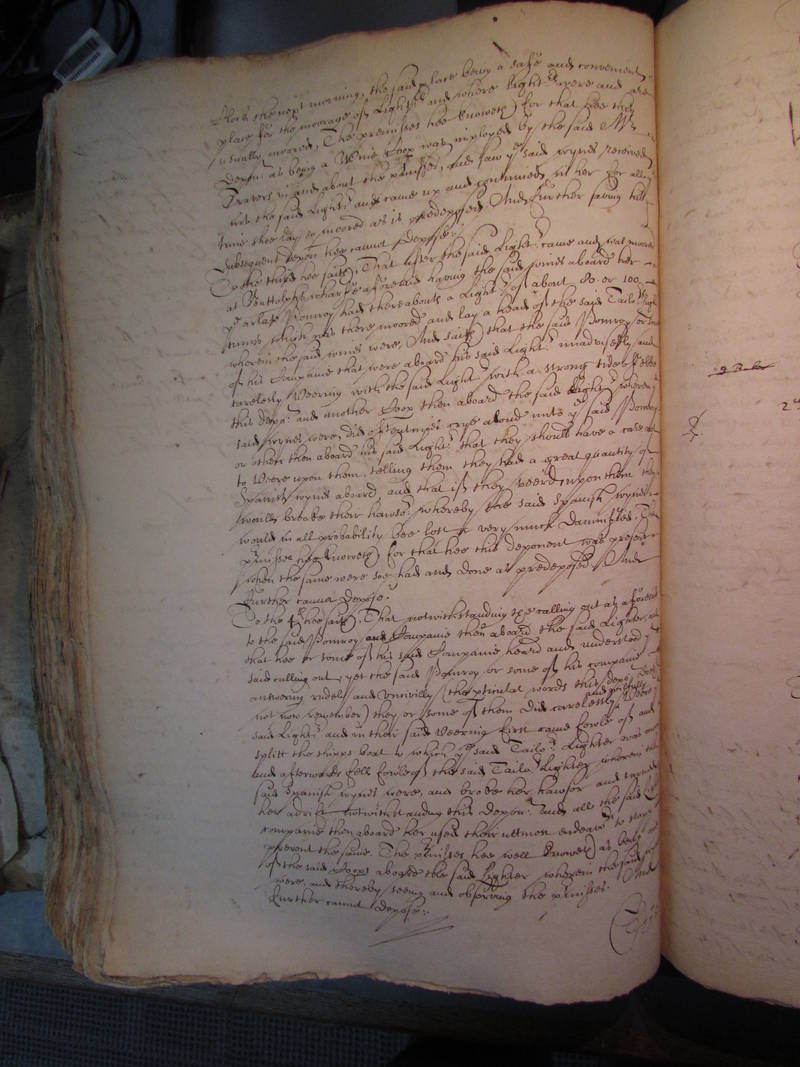 Clock the next morning, the said place being a safe and convenient
place for the moorage of Lighters and where Lighters were and are
usually moored, The premisses hee knoweth for that hee this
Depon.t as being a Wine Coop was imployed by the said Mr
Travers in and about the p.misses, and saw ye said wynes
into the said Lighter and came up and continued in her for all
tyme shee lay so moored as is predeposed And further saving his
Subsequent depon hee cannot depose:
To the third hee saith, That after the said Lighter came and was moored
at Buttolphs wharfe aforesaid having the said wines aboard her
ye arlate Pomroy had thereabouts a Lighter of about 80 or 100
tonns, which was there moored and lay a head of the said Tailors Lighter
wherein the said wines were, And saith that the said Pomroy or some
of his Companie that were aboard his said Lighter unadvisedly and
carelessly Veering with the said Lighter with a strong tide of ebbe
this depo.t and another Coop then aboard the said Lighter wherein
said wynes were, did oftentymes crye aloud unto ye said Pomroy
or others then aboard his said Lighter that they should have a care not
to Veere upon them, telling them they had a great quantity of
Spanish wynes aboard, and that if they veer'd upon them they
would breake their hawser whereby the said Spanish wynes
would in all probability bee lost or very much Damnified, The
p.misses hee knoweth for that hee this deponent was present
when the same were soe had and done as predeposed And
further cannot depose.
To the 4th hee saith, That notwithstanding the calling out as aforesaid
to the said Pomroy and Companie then aboard the said Lighter, and
that hee or some of his said Companie heard and understood ye
said calling out, yet the said Pomroy or some of his companie
answering rudely and uncivilly (the p.ticular words this depot doth
not now remember) they or some of them did carelessly and wilfully Veere ye
said Lighter and in their said Veering first came fowle of and
splitt the shipps boat to which ye said Tailors Lighter was
and afterwards fell fowle of the said Tailors Lighter wherein the
said Spanish wynes were, and broke her hawser and turned
her adrift notwithstanding this Depon.t and all the said
companie then aboard her used their utmost endeavor to
prevent the same. The p.misses hee well knoweth as being
of the said Coops aboard the said Lighter wherein the said wynes
were, and thereby seeing and observing the p.misses. And
further cannot depose:.